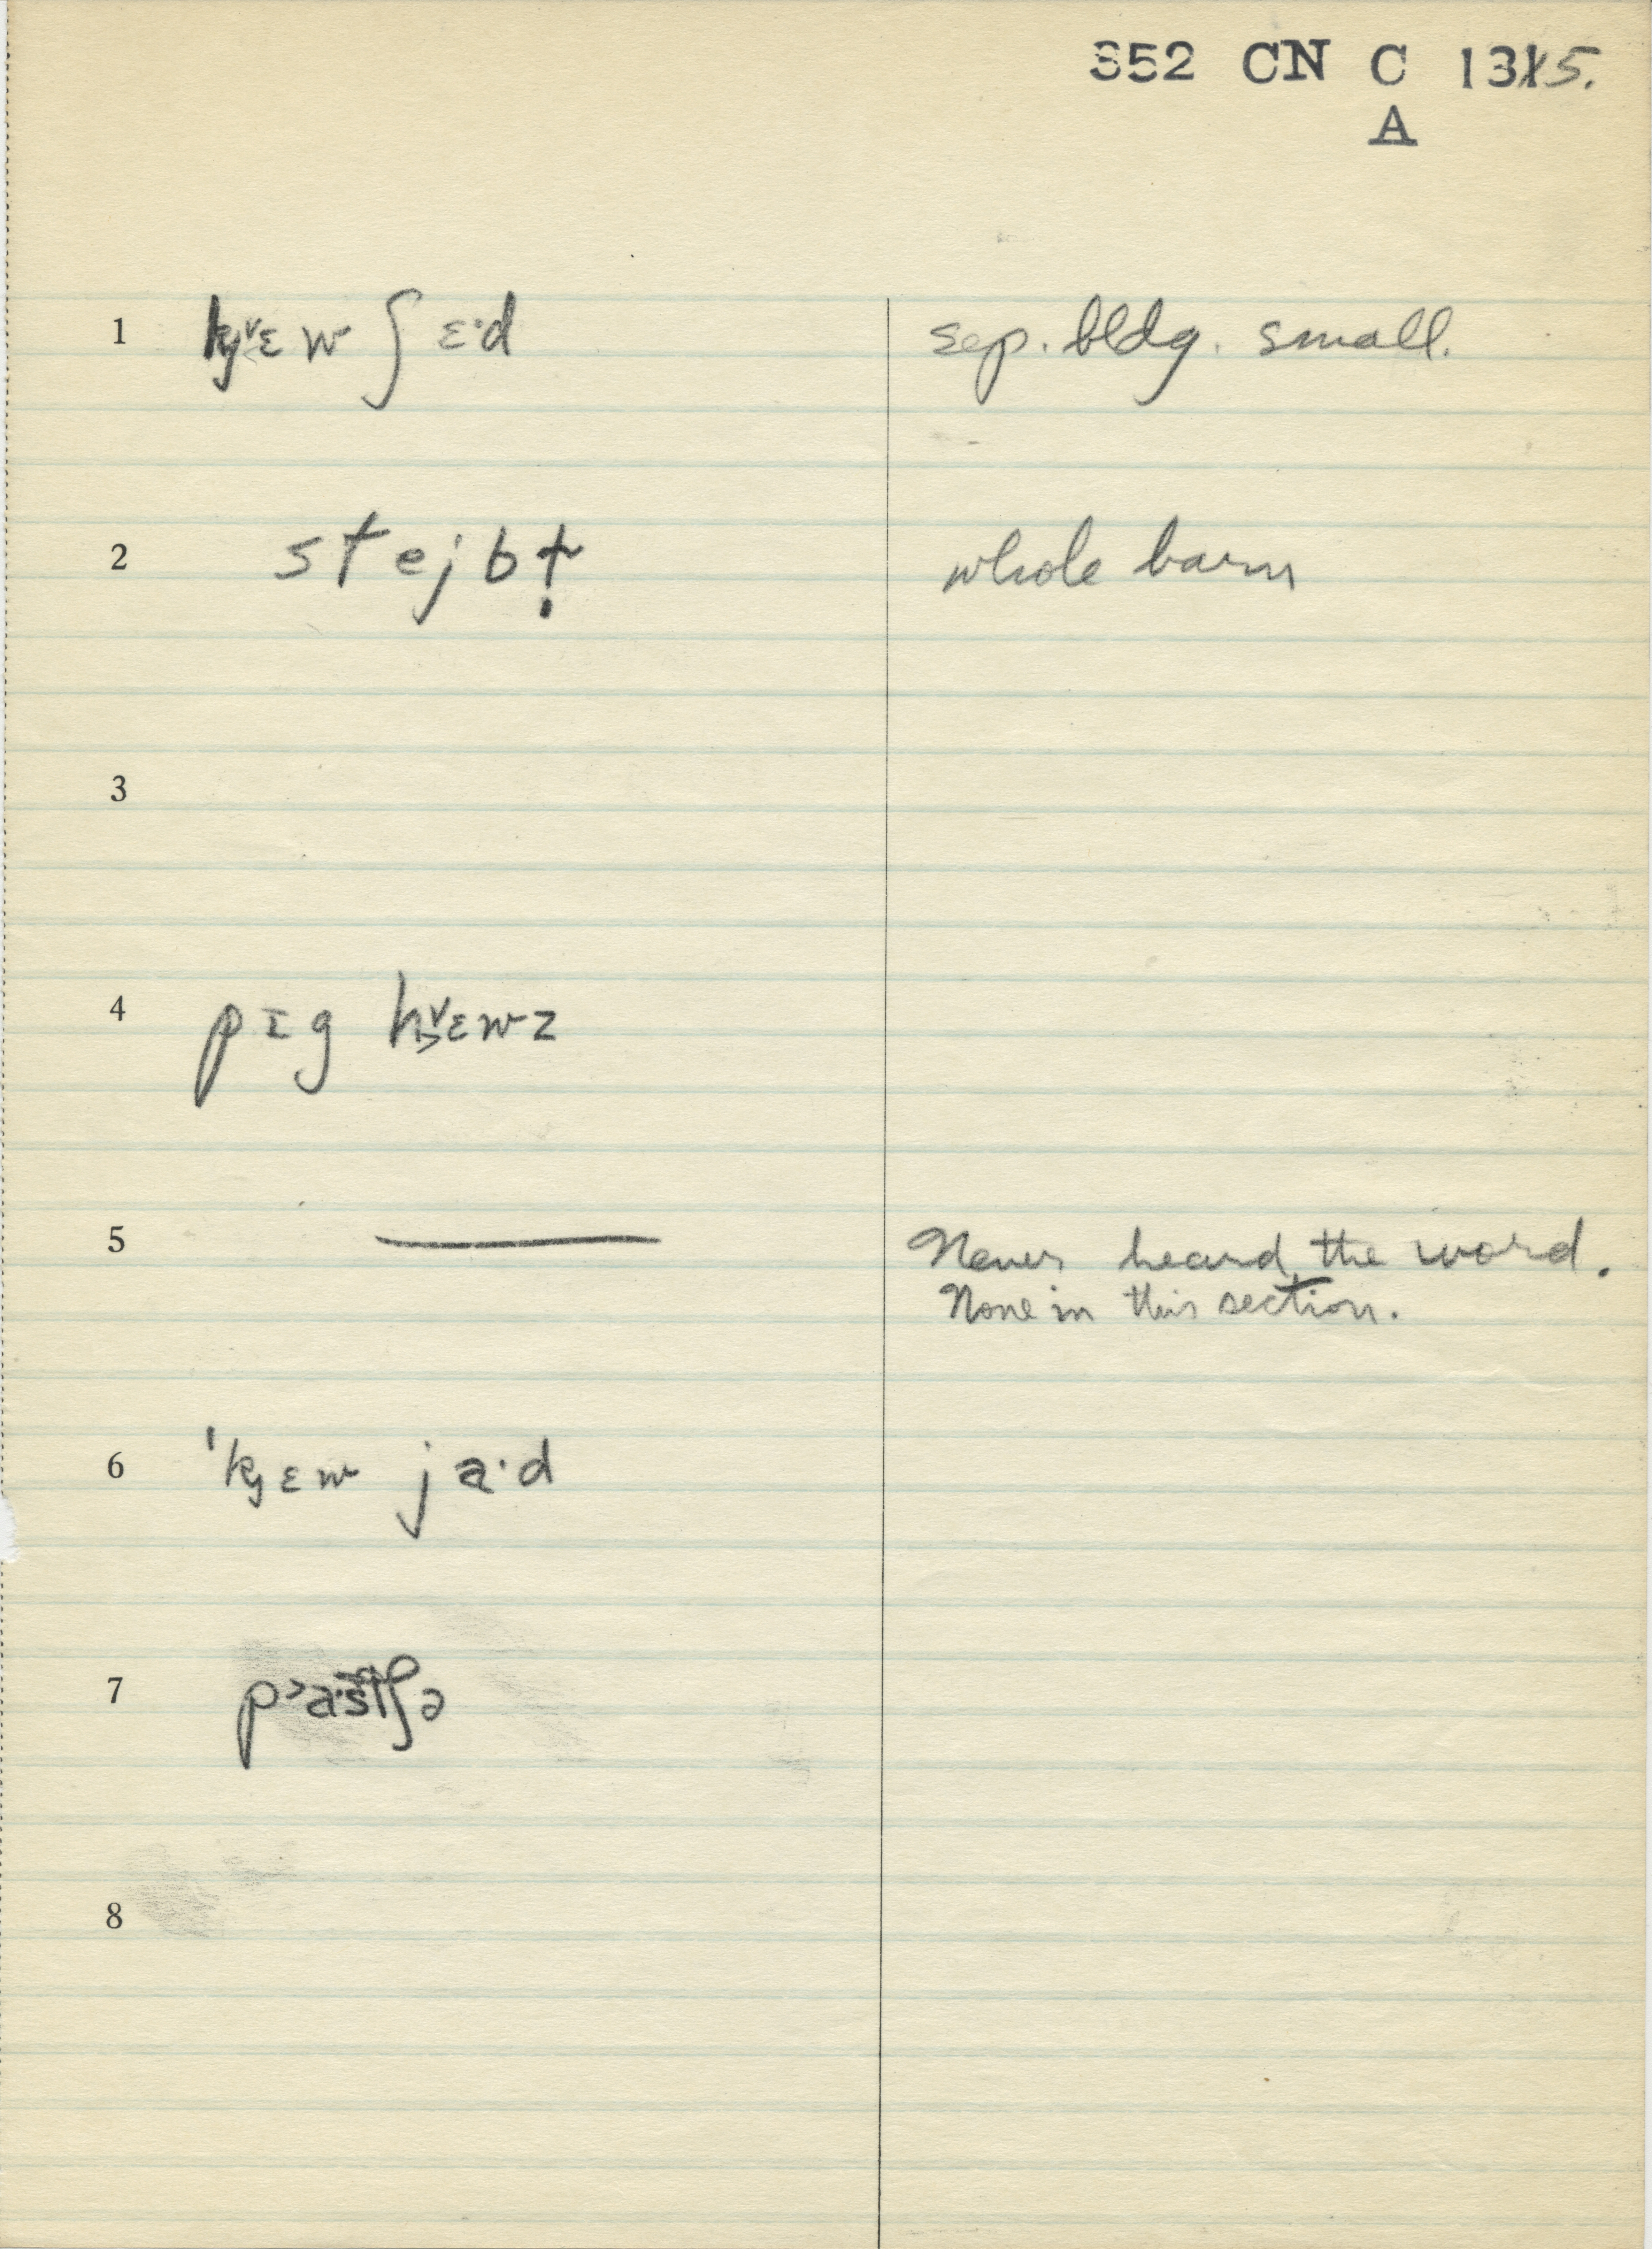 352 CN C 1315.
A
1 kj˅ɛw ʃɛ·d sep. bldg. small.
2 stejbł̣ whole barn
3
4 pɪg h˅ɛwz
5 — Never heard the word.
None in this section.
6 'kjɛw ja·d
7
8